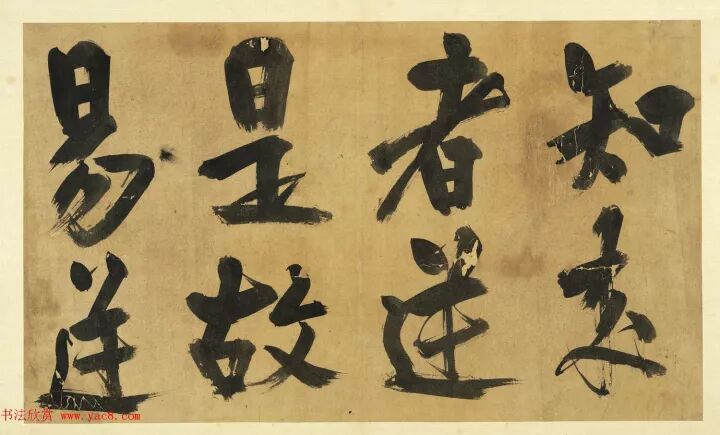 知來
者逆
是故
易逆
书法欣赏 www.yac8.com